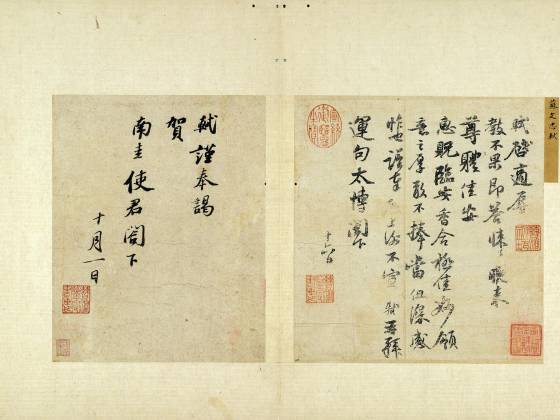 蘇文忠軾
軾啟適辱
教不果即答悚〻晚來
尊體佳安
惠貺臨安香合極佳妙領
意之厚敢不捧當但深感
怍也謹奉啟上謝不宣軾再拜
運句太博閣下
十六日
軾謹奉謁
賀
南圭使君閣下
十月一日